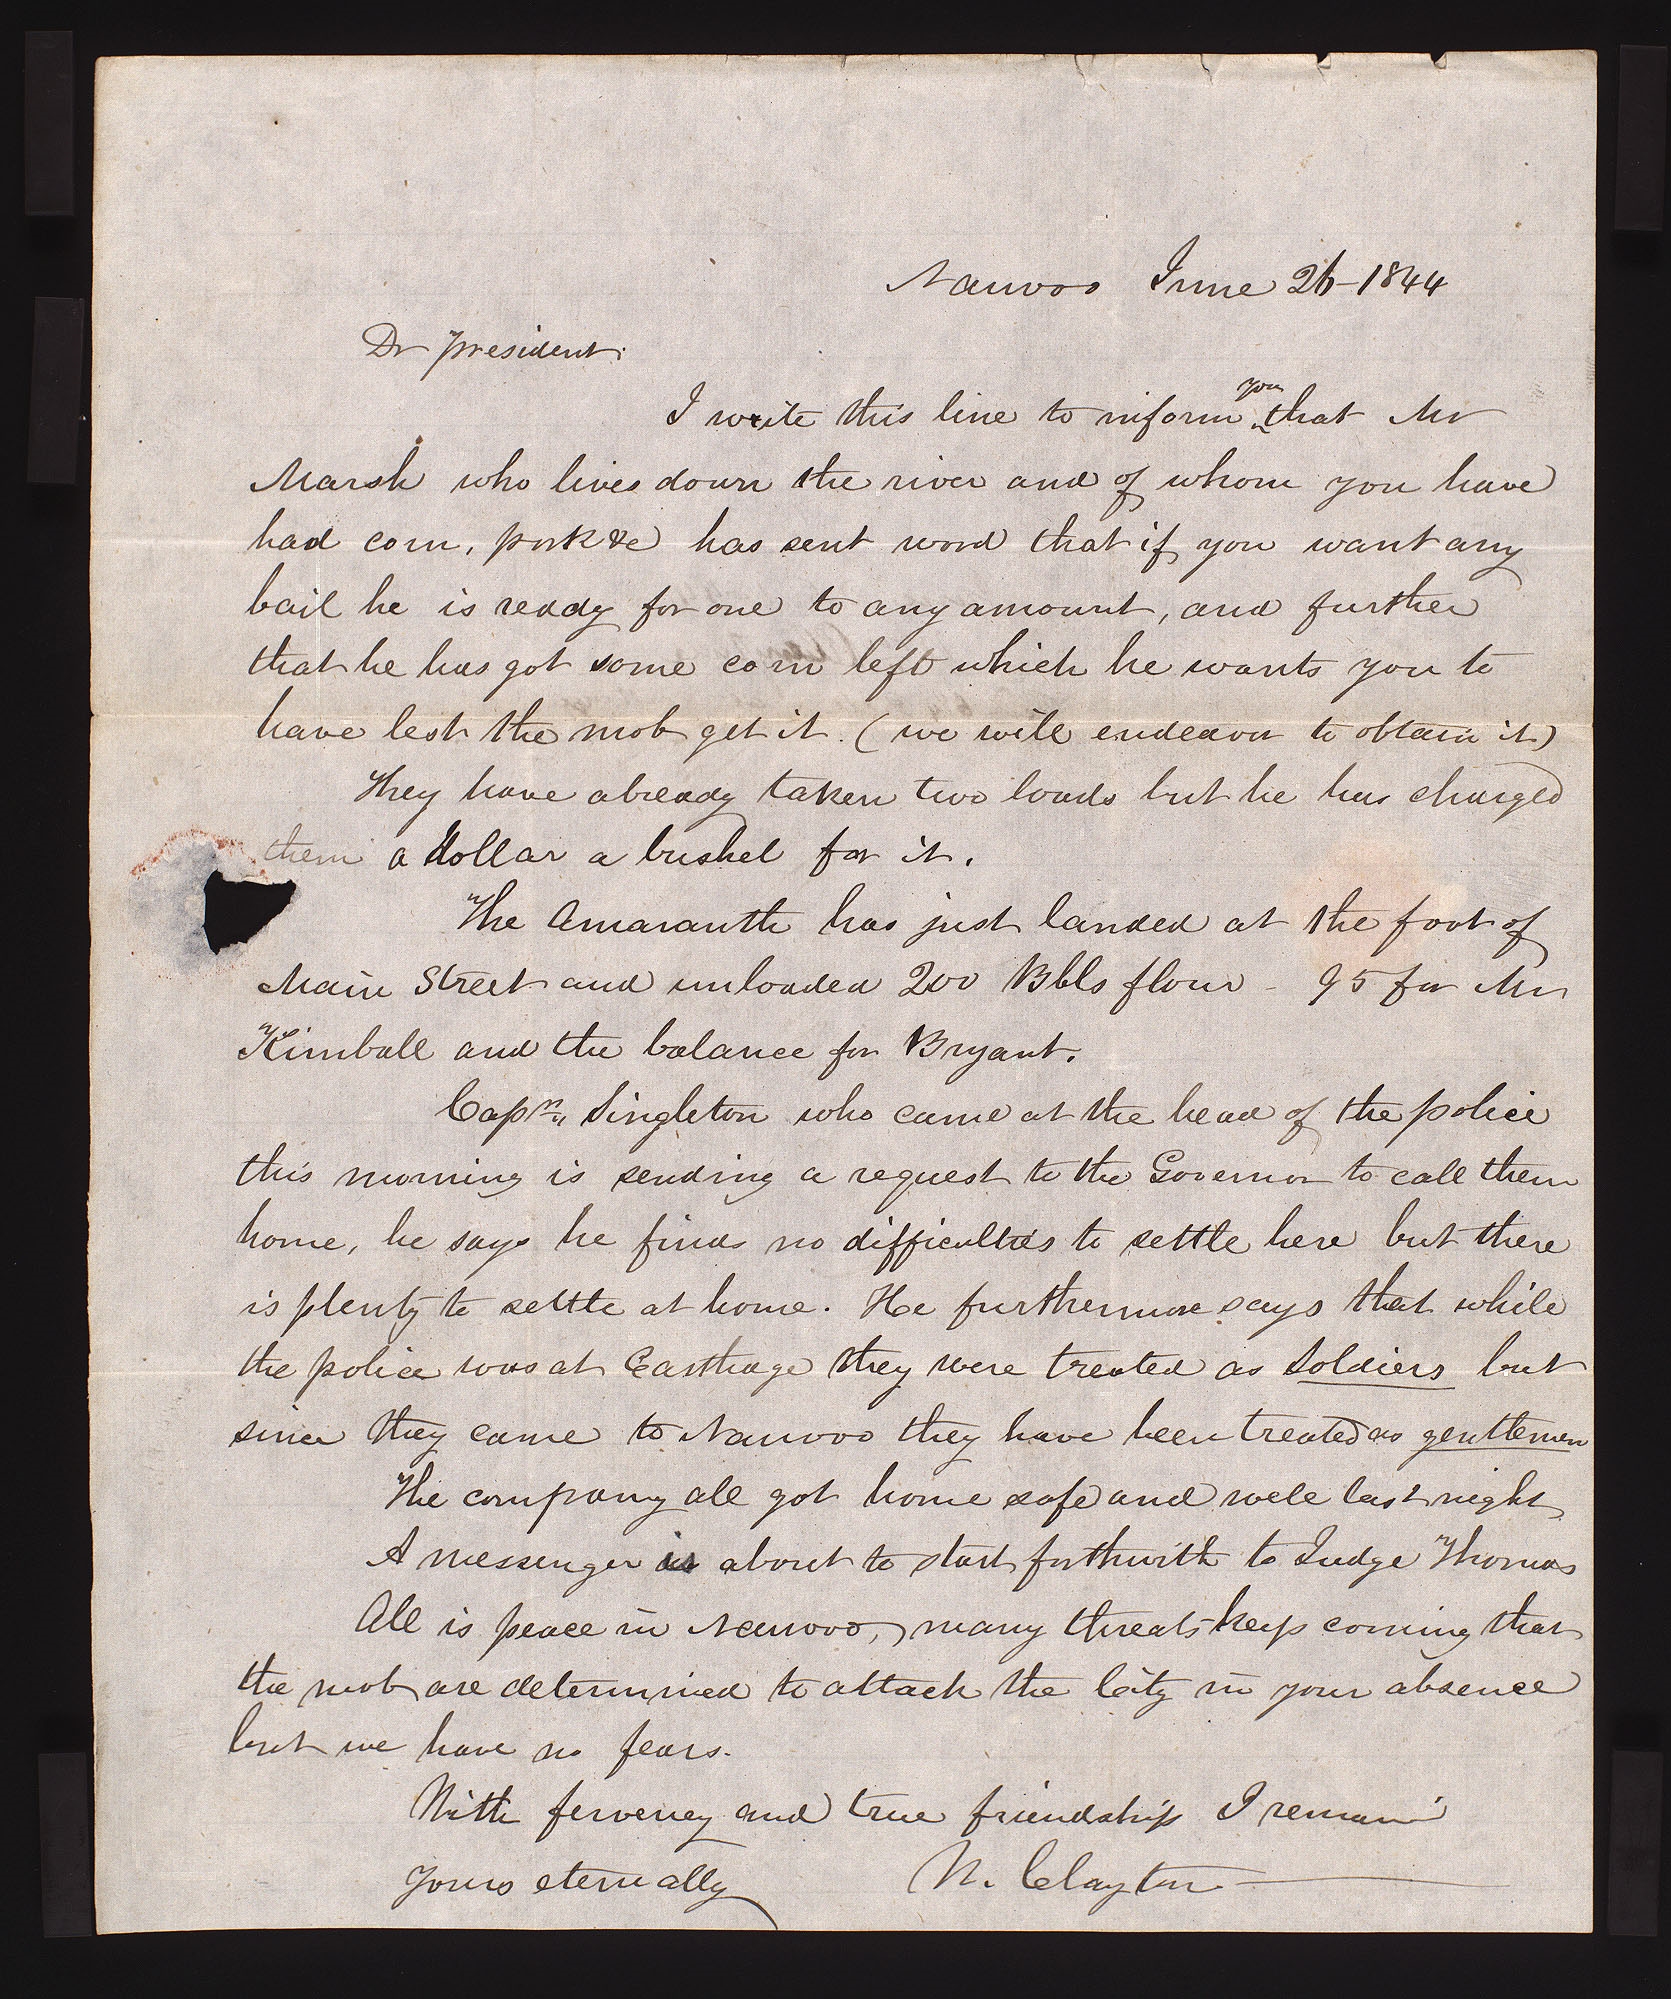 Nauvoo June 26-1844
Dr president.
you
I write this line to inform ‸ that Mr
Marsh who lives down the river and of whom you have
had corn, pork &c has sent word that if you want any
bail he is ready for one to any amount, and further
that he has got some corn left which he wants you to
have lest the mob get it. (we will endeavor to obtain it)
They have already taken two loads but he has charged
them a dollar a bushel for it.
The Amaranth has just landed at the foot of
Main Street and unloaded 200 Bbls flour - 95 for Mr
Kimball and the balance for Bryant.
Capn. Singleton who came at the head of the police
this morning is sending a request to the Governor to call them
home, he says he finds no difficulties to settle here but there
is plenty to settle at home. He furthermore says that while
the police was at Carthage they were treated as soldiers but
since they came to Nauvoo they have been treated as gentlemen
The company all got home safe and well last night
A messenger is about to start forthwith to Judge Thomas
All is peace in Nauvoo, many threats keep coming that
the mob are determined to attack the City in your absence
but we have no fears.
With fervency and true friendship I remain
yours eternally W. Clayton